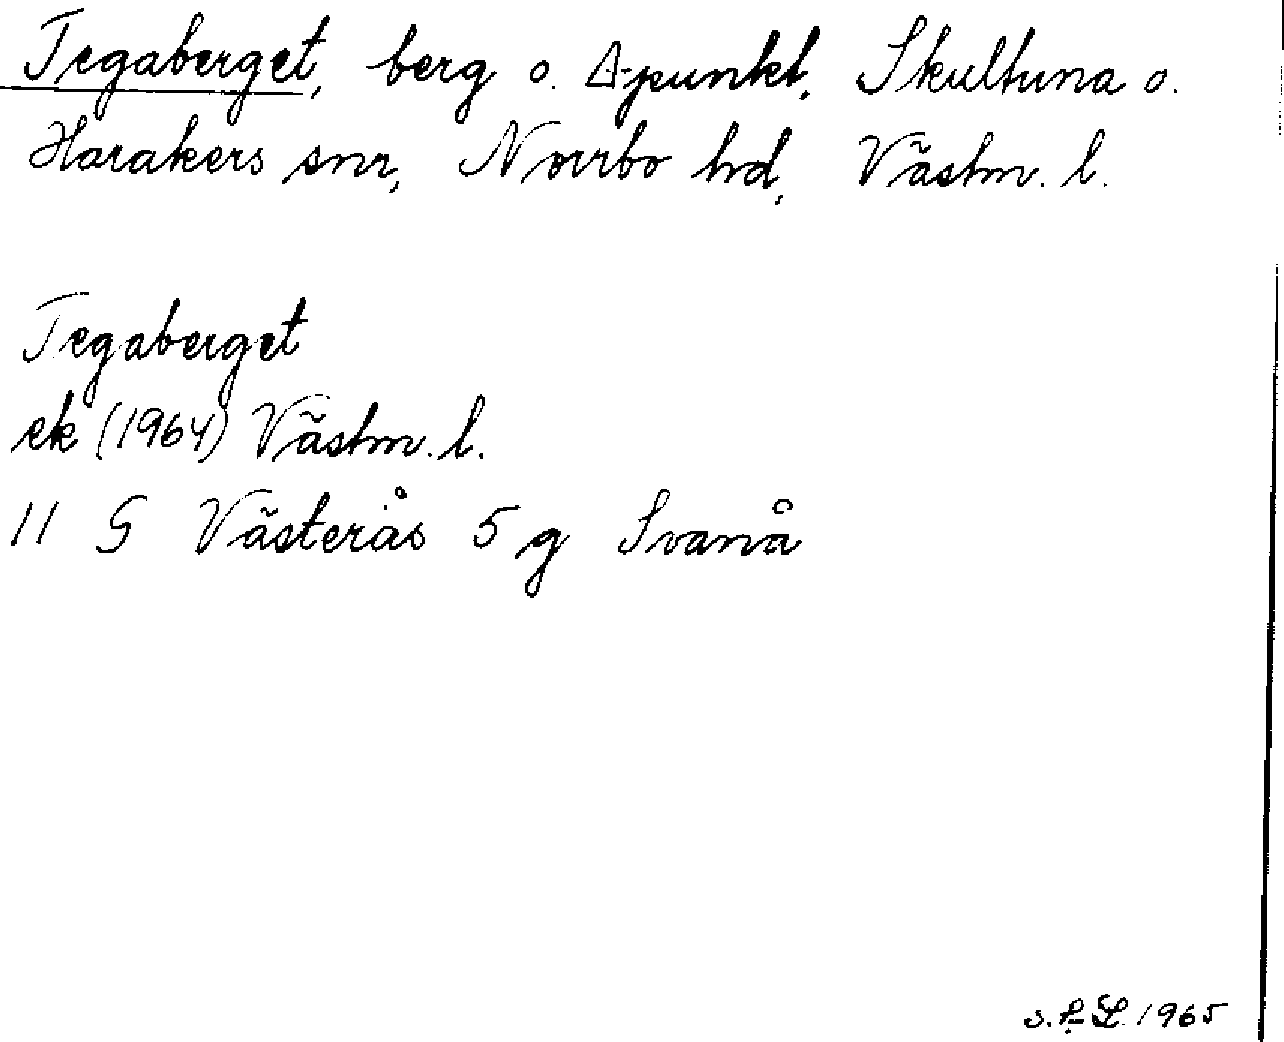 Tegaberget, berg o. Δ-punkt, Skultuna o.
Harakers snr, Norrbo hd, Västm. l.
Tegaberget
ek (1964) Västm. l.
11 G Västerås 5 g Svanå
1965